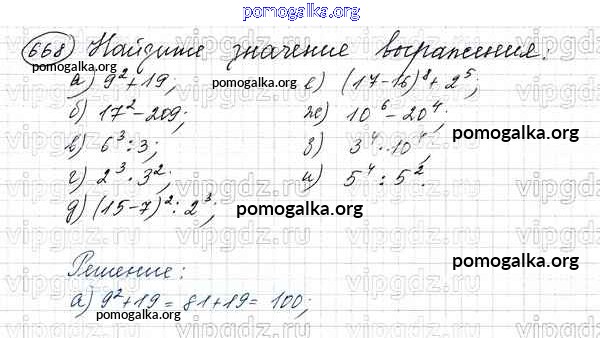 pomogalka.org
668) Найдите значение выражения:
pomogalka.org pomogalka.org
а) 9² + 19; е) (17 - 16)⁸ + 2⁵;
б) 17² - 209; ж) 10⁶ - 20⁴;
pomogalka.org
в) 6³ : 3; з) 3⁴ · 10⁴;
г) 2³ · 3²; и) 5⁴ : 5².
д) (15 - 7)² : 2³; pomogalka.org
Решение:
pomogalka.org
а) 9² + 19 = 81 + 19 = 100;
pomogalka.org
vipgdz.ru